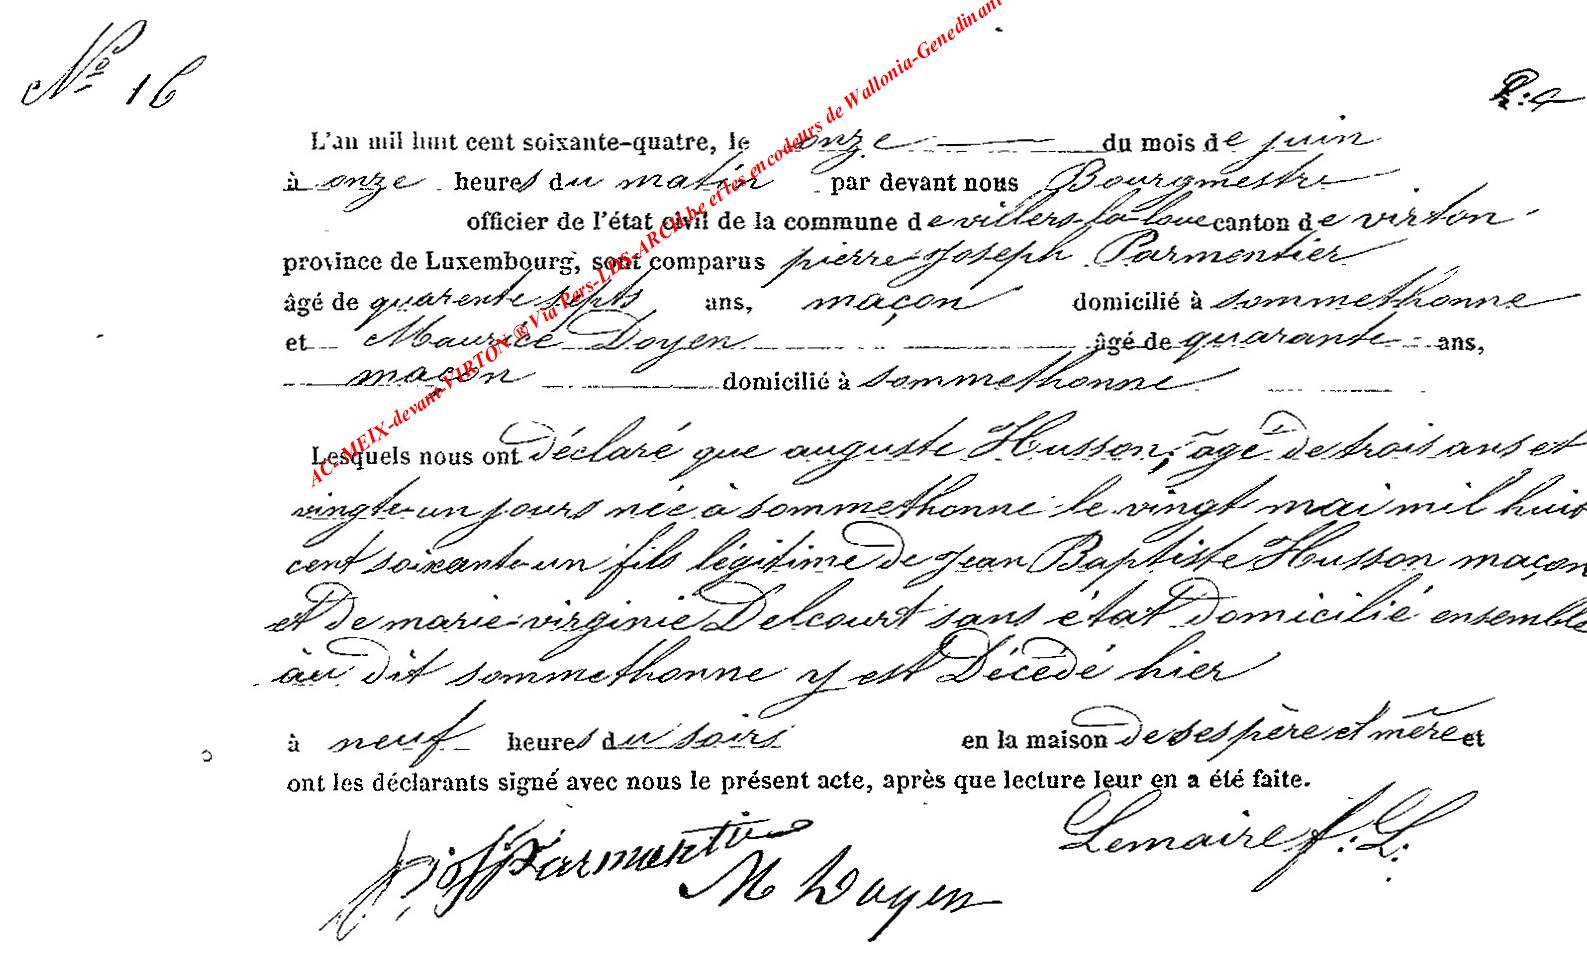 Nº 16
R:4
AC-MEIX-devant-VIRTON ® Via Pers-LDS-ARCH.be et les encodeurs de Wallonia-Genedinant
L'an mil huit cent soixante-quatre, le onze du mois de juin
à onze heures du matin par devant nous Bourgmestre
officier de l'état civil de la commune de villers-la-loue canton de virton
province de Luxembourg, sont comparus pierre-Joseph Parmentier
âgé de quarente septs ans, maçon domicilié à sommethonne
et Maurice Doyen âgé de quarante ans,
maçon domicilié à sommethonne
Lesquels nous ont déclaré que auguste Husson, âgé de trois ans et
vingt-un jours née à sommethonne le vingt mai mil huit
cent soixante-un fils légitime de Jean Baptiste Husson maçon
et De marie-virginie Delcourt sans état Domicilié ensemble
âu dit sommethonne y est Décédé hier
à neuf heures du soirs en la maison de ses père et mère et
ont les déclarants signé avec nous le présent acte, après que lecture leur en a été faite.
Lemaire f. L.
Parmentier
M Doyen